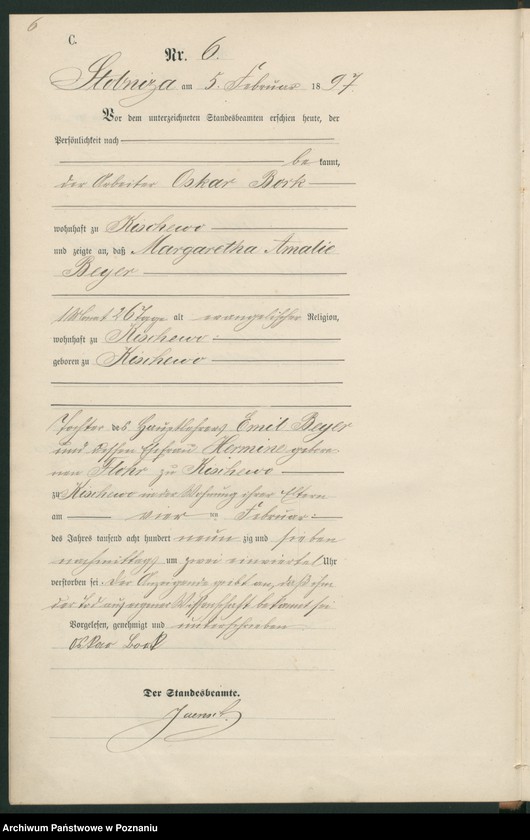 6
C.
Nr. 6.
Stobniza am 5. Februar 1897.
Vor dem unterzeichneten Standesbeamten erschien heute, der
Persönlichkeit nach
be kannt,
der Arbeiter Oskar Bork
wohnhaft zu Kischewo
und zeigte an, daß Margaretha Amalie
Beyer
1 Monat 26 Tage alt evangelischer Religion,
wohnhaft zu Kischewo
geboren zu Kischewo
Tochter des Hauptlehrers Emil Beyer
und dessen Ehefrau Hermine gebore
nen Flohr zu Kischewo
zu Kischewo in der Wohnung ihrer Eltern
am vier ten Februar
des Jahres tausend acht hundert neun zig und sieben
nachmittags um zwei einviertel Uhr
verstorben sei. Der Anzeigende gibt an, daß ihm
der Tod aus eigner Wissenschaft bekannt sei
Vorgelesen, genehmigt und unterschrieben
Oskar Bork
Der Standesbeamte.
Archiwum Państwowe w Poznaniu